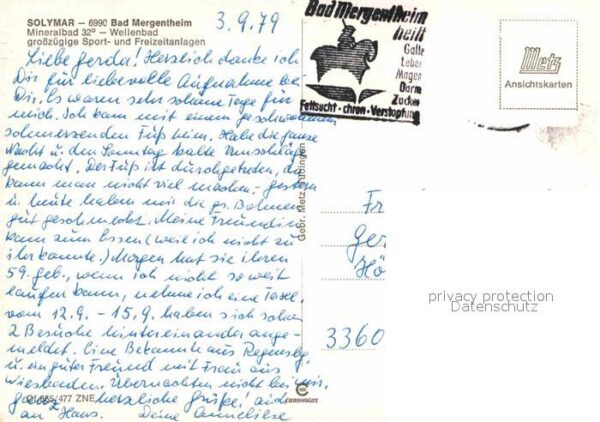 SOLYMAR — 6990 Bad Mergentheim
Mineralbad 32° — Wellenbad
großzügige Sport- und Freizeitanlagen
3.9.79
Liebe Gerda! Herzlich danke ich
Dir für liebevolle Aufnahme bei
Dir. Es waren sehr schöne Tage für
mich. Ich kam mit einem geschwollenen
schmerzenden Fuß heim. Habe die ganze
Nacht u. den Sonntag kalte Umschläge
gemacht. Der Fuß ist durchgetreten, da
kann man nicht viel machen,- gestern
u. heute haben mir die gr. Bohnen
gut geschmeckt. Meine Freundin
kam zum Essen (weil ich nicht zu
ihr konnte.) Morgen hat sie ihren
59. Geb., wenn ich nicht so weit
laufen kann, nehme ich eine Taxe.
vom 12.9. - 15.9. haben sich schon
2 Besuche hintereinander ange-
meldet. Eine Bekannte aus Regensbg.
u. ein guter Freund mit Frau aus
Wiesbaden. Übernachten nicht bei mir.
Ganz herzliche Grüße! auch
an Hans. Deine Anneliese
477 ZNE
Gebr. Metz Tübingen
CHROMOLUX
Bad Mergentheim
heilt
Galle
Leber
Magen
Darm
Zucker
Fettsucht · chron · Verstopfung
Metz
Ansichtskarten
Fr
Ger
Hö
3360
privacy protection
Datenschutz